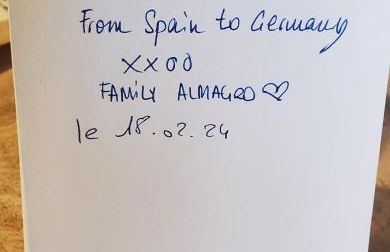 From Spain to Germany
XXOO
FAMILY ALMAGRO ♡
le 18.02.24